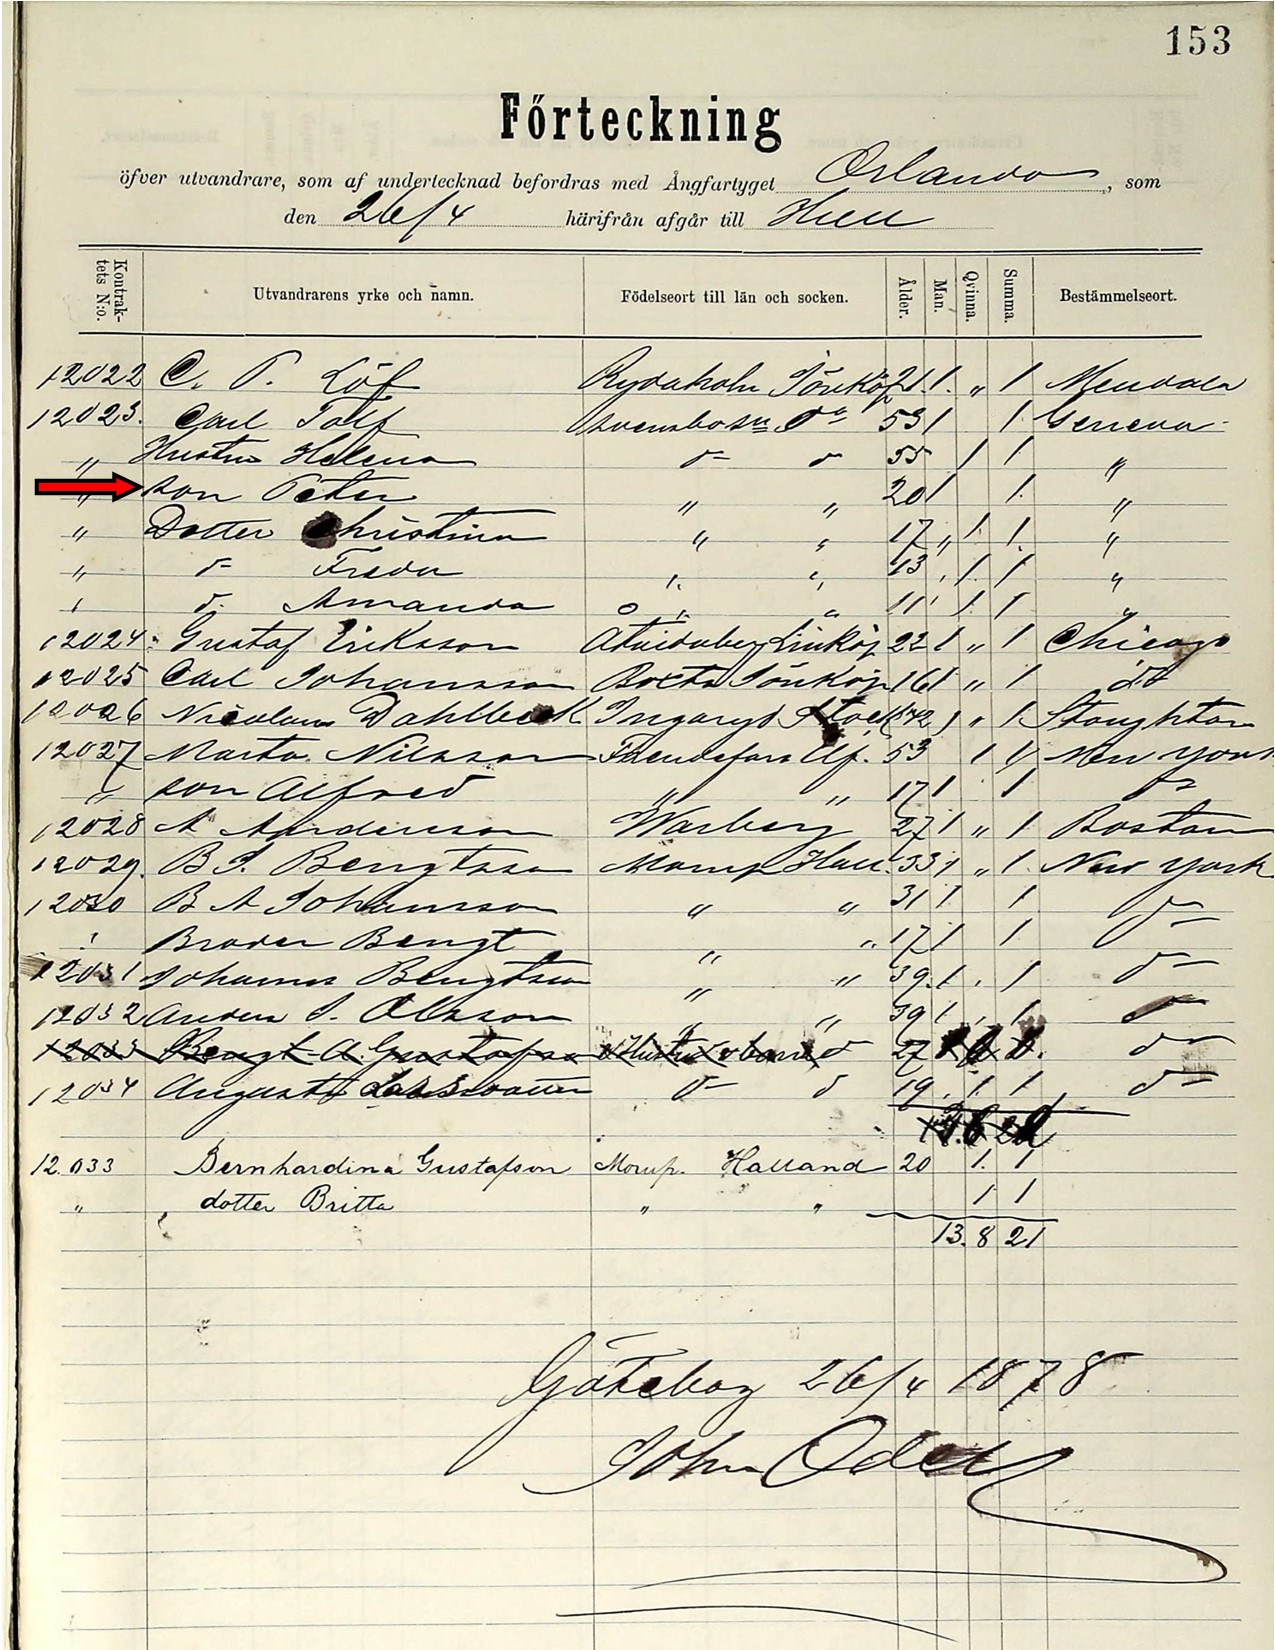 153
Förteckning
öfver utvandrare, som af undertecknad befordras med Ångfartyget Orlando, som
den 26/4 härifrån afgår till Hull
Kontraktets N:o. Utvandrarens yrke och namn. Födelseort till län och socken. Ålder. Man. Qvinna. Summa. Bestämmelseort.
12022 C. P. Löf Rydaholm Jönköp 21 1. " 1
12023. Carl Tolf do 53 1 1 Geneva
" Hustru Helena do do 55 1 1 "
" son Peter " " 20 1 1. "
" Dotter Christina " " 17 " 1. 1. "
" do Freda " " 13 1. 1 "
" do. Amanda " " 11 1. 1 "
12024 Gustaf Eriksson Atvidaberg Linköp 22 1 " 1 Chicago
12025 Carl Johansson Jönköp 16 1 " 1 do
12026 Nicolaus Dahlbeck 1 " 1. Stoughton
12027 Marta Nilsson Elf. 53 1 1 New York
" son Alfred " " 17 1 1 do
12028 A Anderson Warberg 27 1 " 1 Boston
12029. B. J. Bengtsson Morup Hall. 33 1 " 1. New York
12030 B A Johansson " " 31 1 1 do
Broder Bengt " " 17 1 1 do
12031 Johannes Bengtsson " " 39. 1. 1 do
12032 Anders J. Olsson " " 39 1 1 do
12033 Bengt A. Gustafson o Hustru o barn do 27 do
12034 August Larsdotter do do 19 1. 1 do
12.033 Bernhardina Gustafson Morup. Halland 20 1. 1
" dotter Britta " " 1 1
13. 8 21
Göteborg 26/4 1878
John Odell